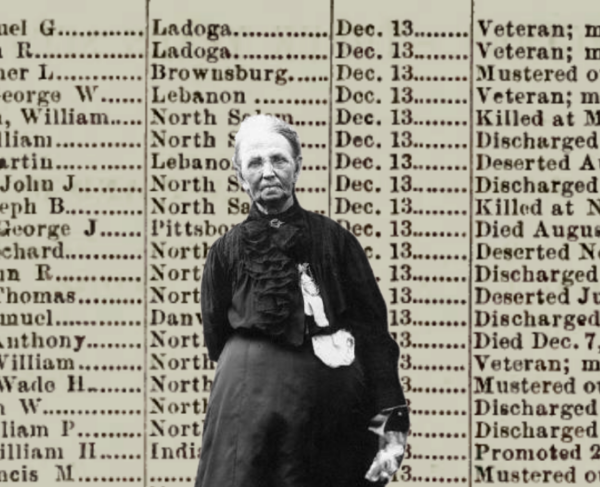 uel G...... Ladoga............... Dec. 13......... Veteran; m
R....... Ladoga............... Dec. 13......... Veteran; m
er L....... Brownsburg...... Dec. 13......... Mustered o
eorge W...... Lebanon ............ Dec. 13......... Veteran; m
, William..... North Salem...... Dec. 13......... Killed at M
lliam......... North S Dec. 13......... Discharged
artin......... Lebano Dec. 13......... Deserted Au
John J....... North S Dec. 13......... Discharged
eph B........ North Sa Dec. 13......... Killed at N
George J..... Pittsbo Dec. 13......... Died Augus
chard......... North c. 13......... Deserted No
n R.......... North 13......... Discharged
Thomas....... Nort 13......... Deserted Ju
muel......... Danv 13......... Discharged
nthony....... North 13......... Died Dec. 7,
William...... North 13......... Veteran; m
Wade H....... North 3......... Mustered ou
W........... North 13......... Discharged
liam P....... Nort 13......... Discharged
illiam H..... India 3......... Promoted 2
ncis M....... ......... 13......... Mustered o